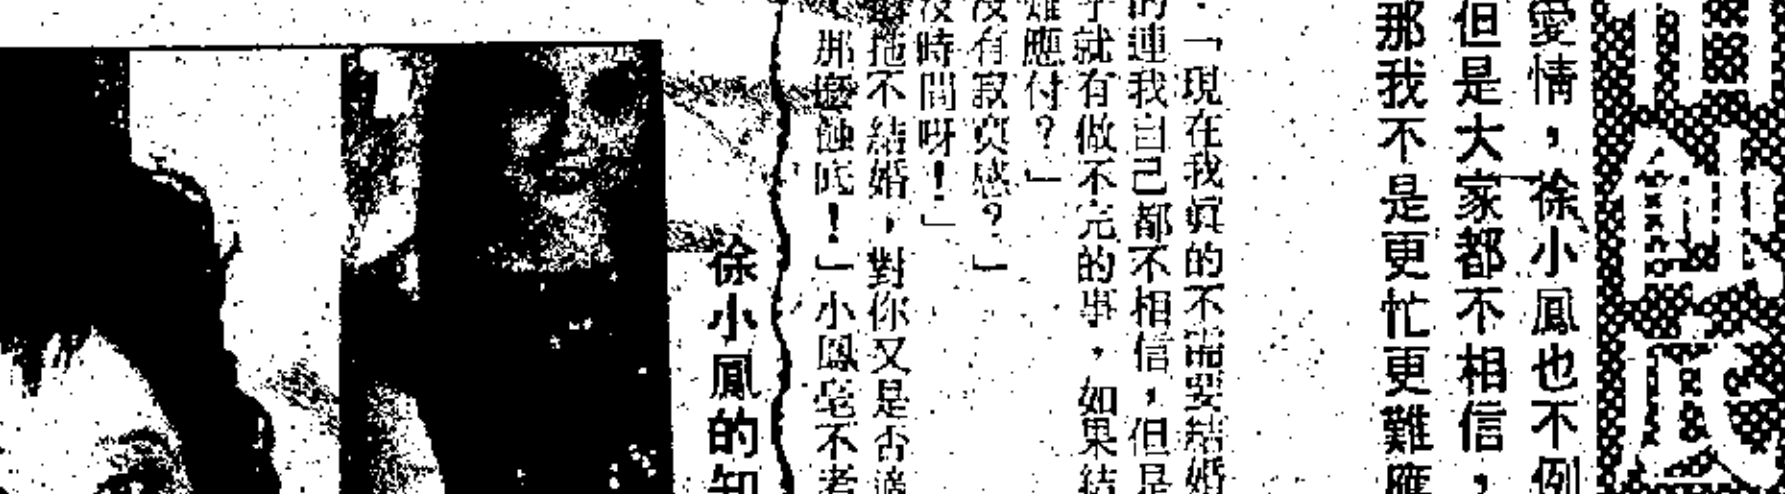 愛情，徐小鳳也不例
但是大家都不相信，
那我不是更忙更難應
「現在我真的不需要結婚
的連我自己都不相信，但是
乎就有做不完的事，如果結
難應付？」
沒有寂寞感？」
沒時間呀！」
拖不結婚，對你又是否適
那麼蝕底！」小鳳毫不考
徐小鳳的知